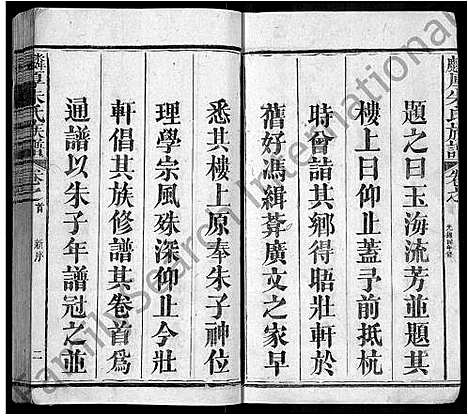 題之曰玉海流芳並題其
樓上曰仰止蓋予前抵杭
時曾詣其鄉得晤壯軒於
舊好馮緝葊廣文之家早
悉其樓上原奉朱子神位
理學宗風殊深仰止今壯
軒倡其族修譜其卷首爲
通譜以朱子年譜冠之並
朱氏族譜
卷之首
新序
二
Family Search International